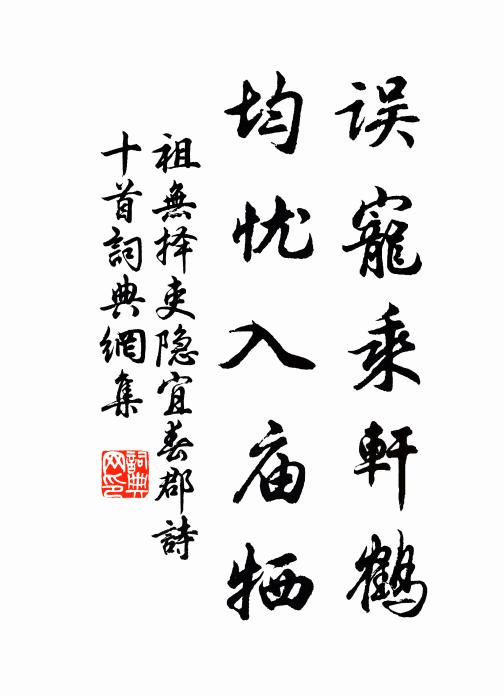 误寵乘軒鶴
均忧入庙牺
祖無择吏隐宜春郡詩
十首詞典網集
詞典网印